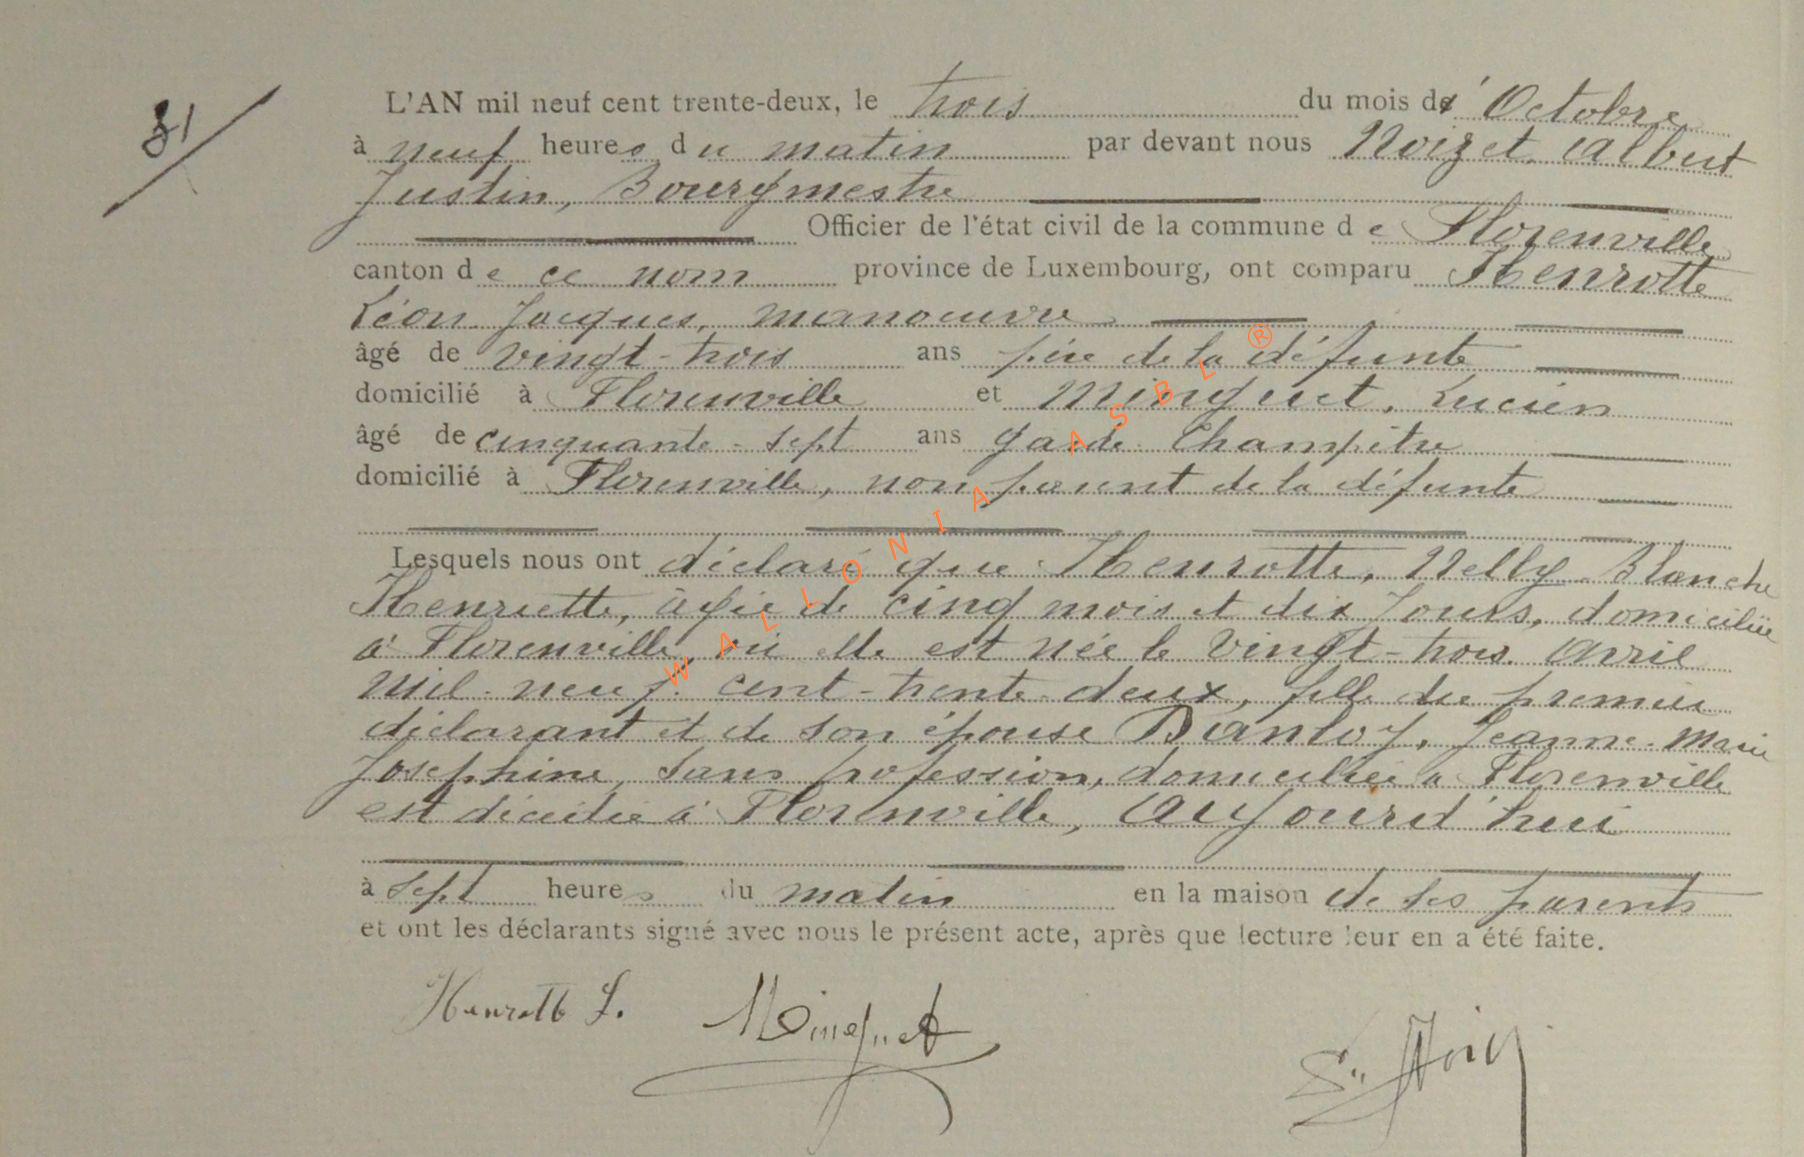 31
L'AN mil neuf cent trente-deux, le trois du mois d'Octobre
à neuf heures du matin par devant nous Noizet Albert
Justin, Bourgmestre
Officier de l'état civil de la commune de Florenville
canton de ce nom province de Luxembourg, ont comparu Henrotte
Léon Jacques, manoeuvre
âgé de vingt-trois ans père de la défunte
domicilié à Florenville et Minguet, Lucien
âgé de cinquante-sept ans garde Champêtre
domicilié à Florenville, non parent de la défunte
Lesquels nous ont déclaré que Henrotte, Nelly Blanche
Henriette, âgée de cinq mois et dix jours, domiciliée
à Florenville où elle est née le vingt-trois Avril
mil-neuf-cent-trente-deux, fille du premier
déclarant et de son épouse Danloy, Jeanne-Marie
Josephine, sans profession, domiciliée à Florenville
est décédée à Florenville, Aujourd'hui
à sept heures du matin en la maison de ses parents
et ont les déclarants signé avec nous le présent acte, après que lecture leur en a été faite.
Henrotte L. Minguet
WALLONIA ASBL ®